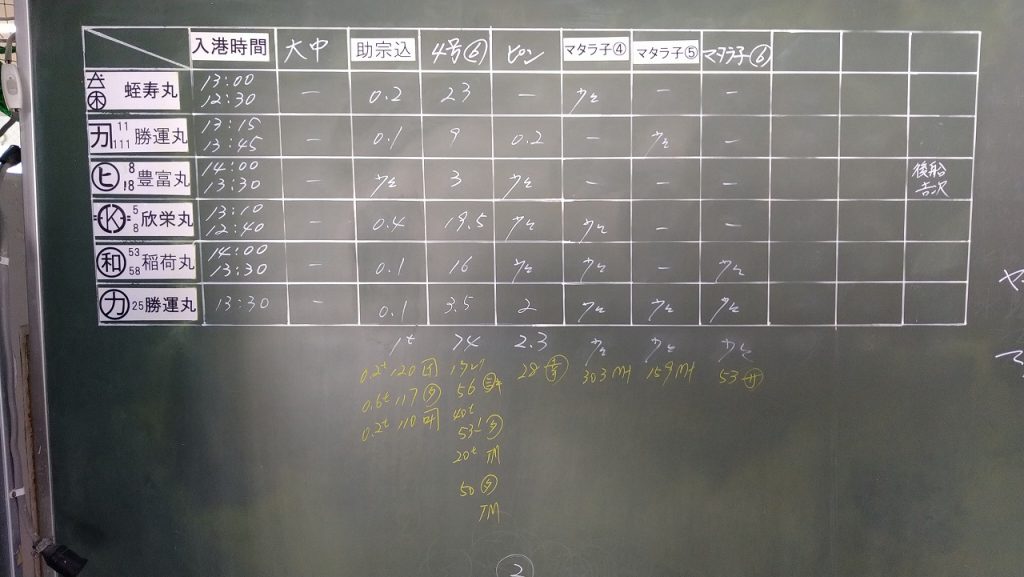 入港時間 大中 助宗込 4号⑥ ピン マタラ子④ マタラ子⑤ マタラ子⑥
蛭寿丸 13:00 12:30 - 0.2 23 - ケと - -
カ 11 111 勝運丸 13:15 13:45 - 0.1 9 0.2 - ケと -
ヒ 8 18 豊富丸 14:00 13:30 - ケと 3 ケと - - - 後船
K 5 8 欣栄丸 13:10 12:40 - 0.4 19.5 ケと ケと - -
和 53 58 稲荷丸 14:00 13:30 - 0.1 16 ケと ケと - ケと
カ 25 勝運丸 13:30 - 0.1 3.5 2 ケと ケと ケと
1t 74 2.3 ケと ケと ケと
0.2t 120 28 303 159 53
0.6t 117 56
0.2t 110 40t
53
20t TM
50
TM
2